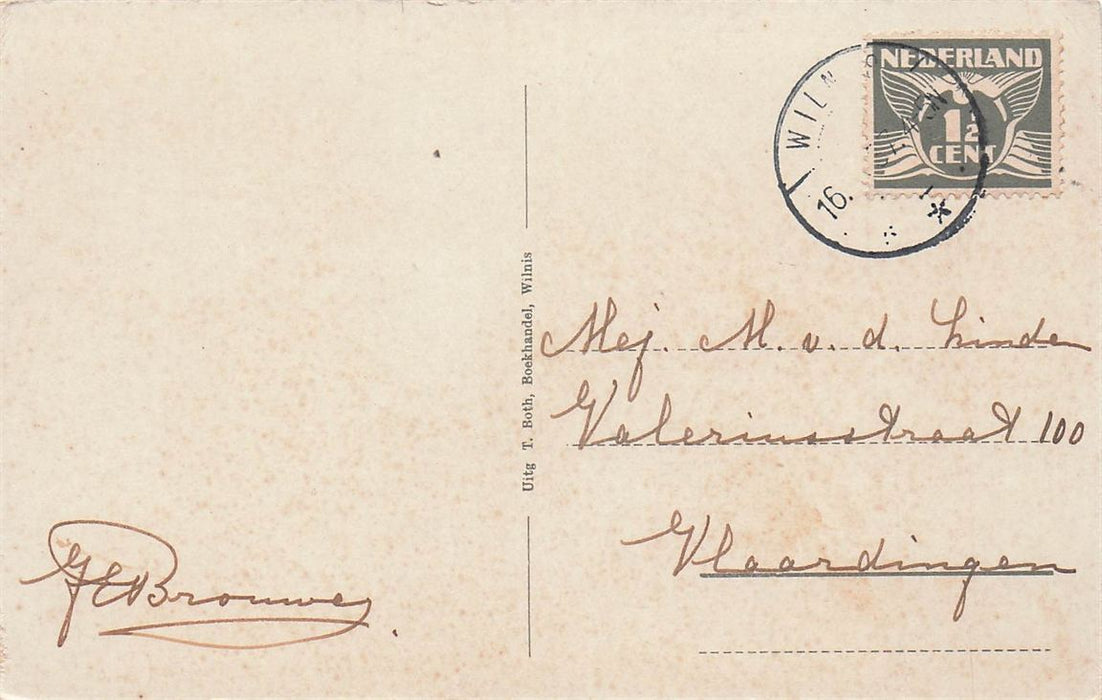 NEDERLAND
1½
CENT
WILN
16.
Uitg T. Both, Boekhandel, Wilnis
Mej. M. v. d. Linden
Valeriusstraat 100
Vlaardingen
Brouwer